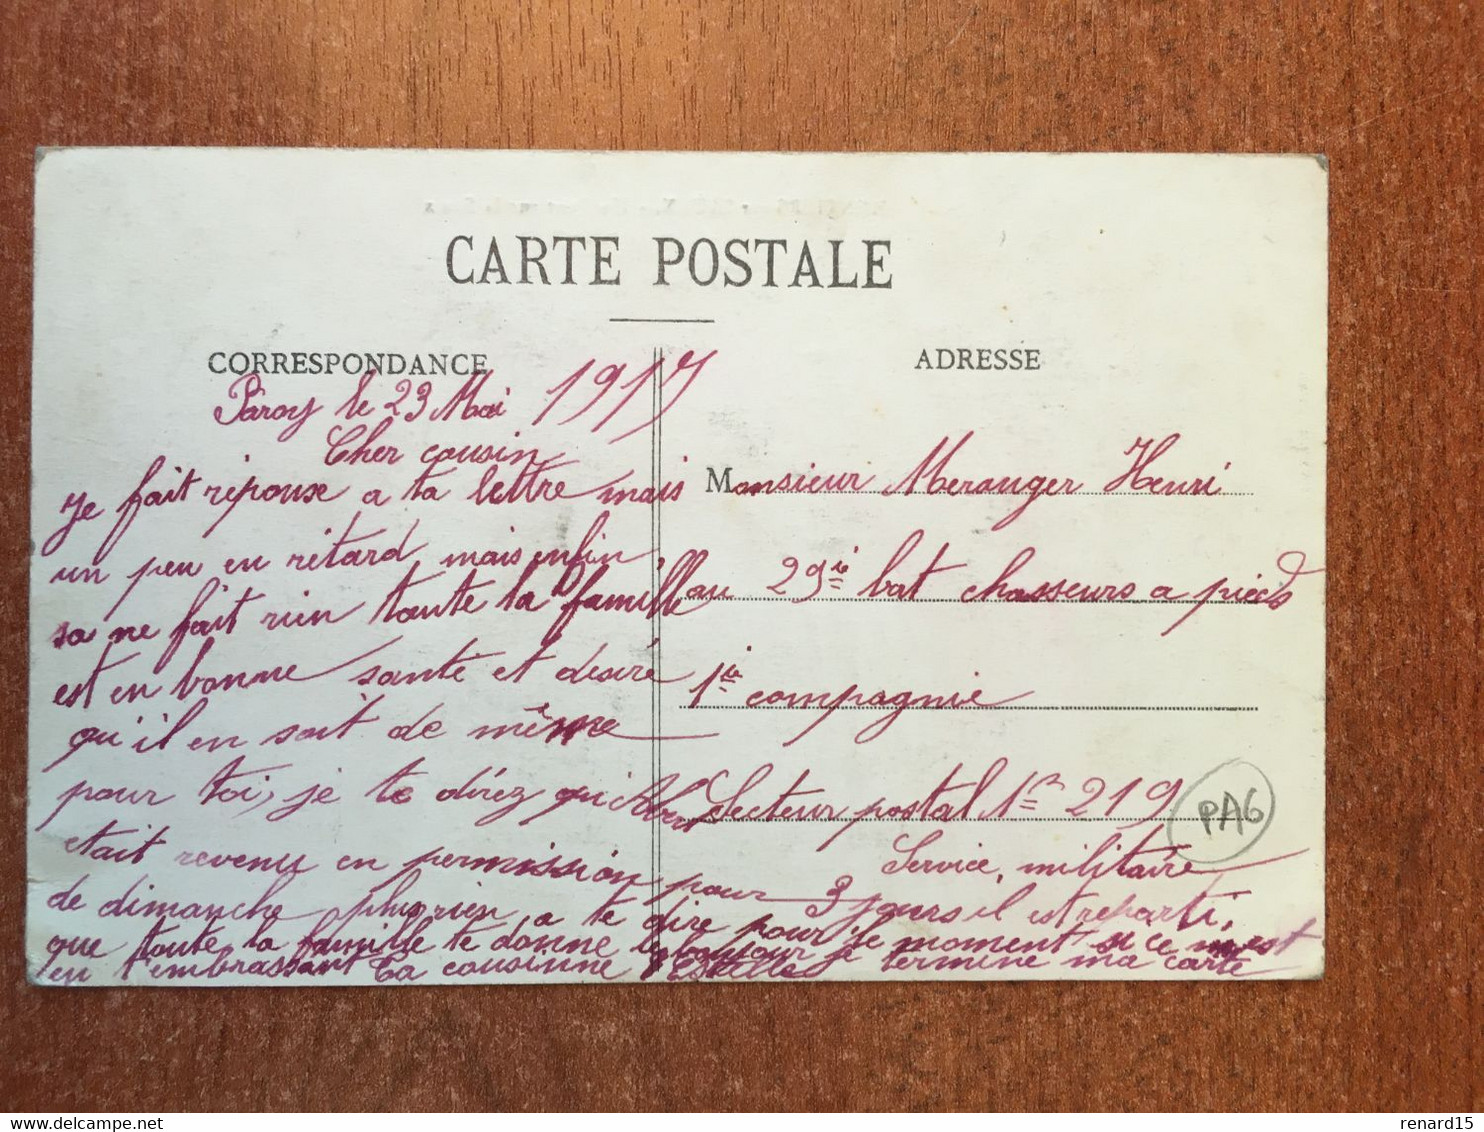 CARTE POSTALE
CORRESPONDANCE
Paroy le 23 Mai 1917
Cher cousin
Je fait réponse a ta lettre mais
un peu en rétard mais enfin,
sa ne fait rien toute la famille
est en bonne santé et desiré
qu'il en soit de même
pour toi, je te direz qui Albert
etait revenu en permission pour 3 jours il est reparti,
de dimanche plus rien a te dire pour le moment si ce n'est
que toute la famille te donne le bonjour je termine ma carte
en t'embrassant Ta cousinne Estelle
ADRESSE
Monsieur Meranger Henri
au 29ie bat chasseurs a pieds
1ie compagnie
Secteur postal 219
Service, militaire
PA6
renard15